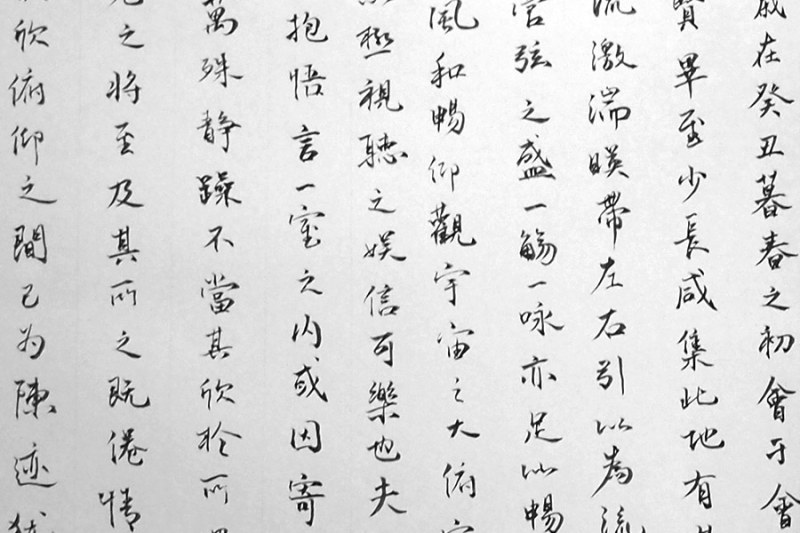 歲在癸丑暮春之初會于會
賢畢至少長咸集此地有
流激湍暎帶左右引以為流
管弦之盛一觴一咏亦足以暢
風和暢仰觀宇宙之大俯
以極視聽之娛信可樂也夫
抱悟言一室之內或因寄
萬殊靜躁不當其欣於所
之將至及其所之既倦情
欣俯仰之間已為陳迹猶